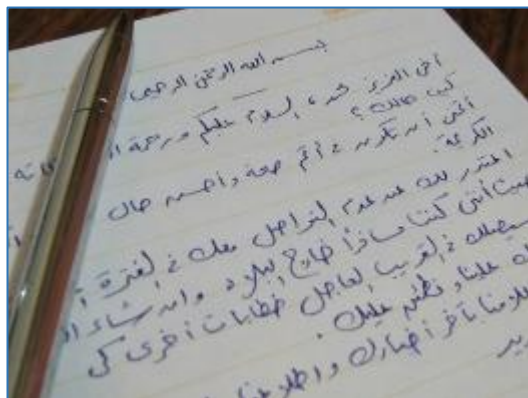 بسم الله الرحمن الرحيم
أخي العزيز محمد، السلام عليكم ورحمة
كيف حالك؟
أتمنى أن تكون في أتم صحة وأحسن حال
الكريمة.
أعتذر لك عن عدم التواصل معك في الفترة
أنني كنت مسافراً خارج البلاد وإن شاء
في القريب العاجل خطابات أخرى كي
علينا ونطمئن عليك.
بآخر أخبارك و